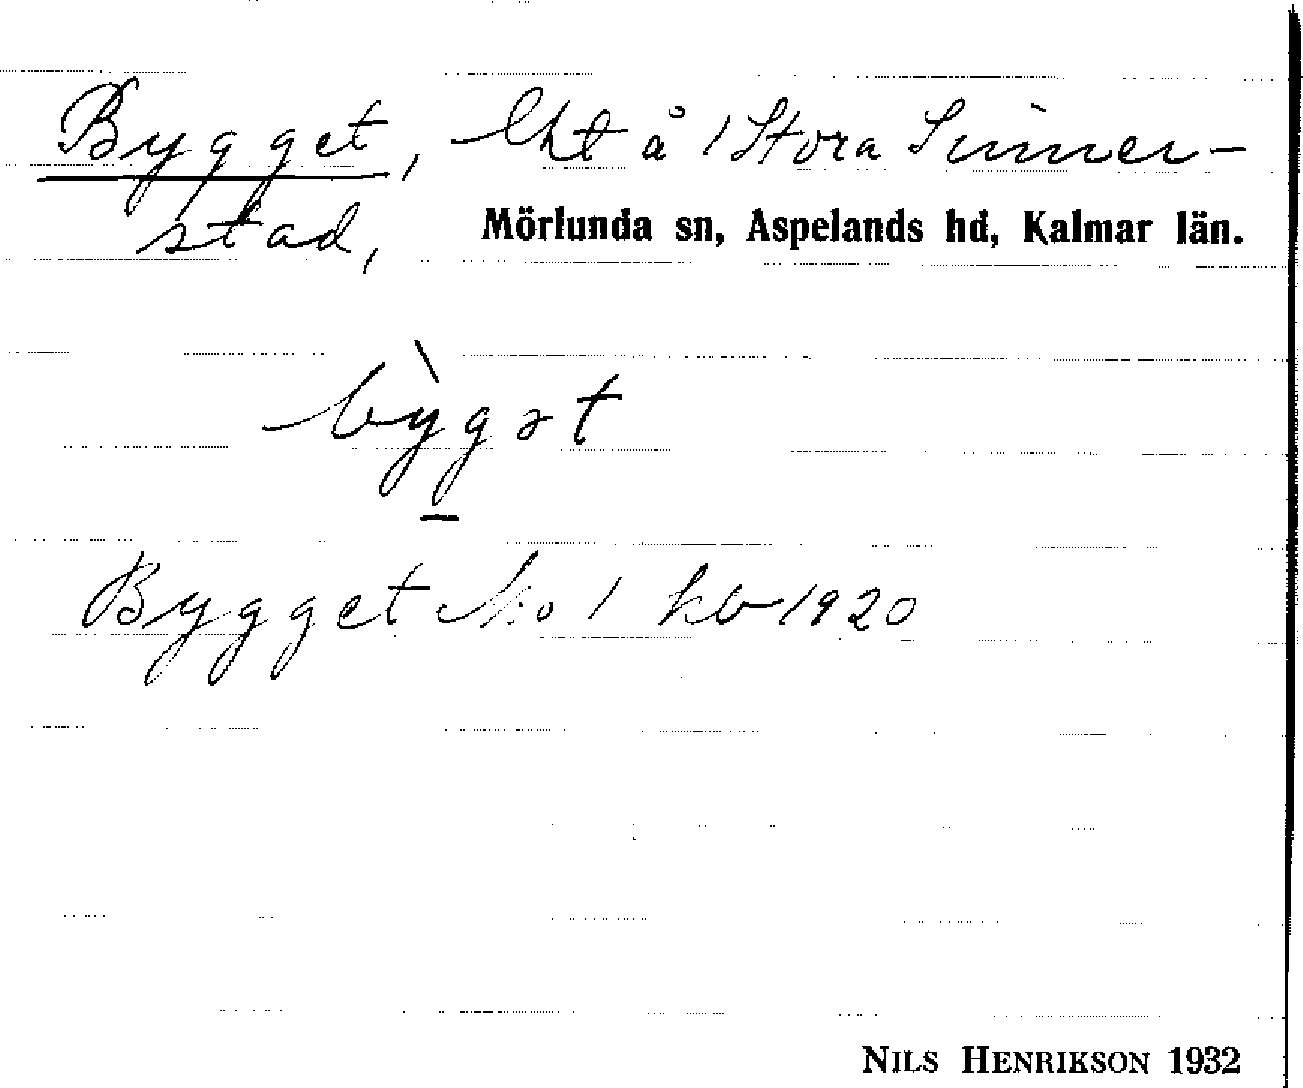 Bygget, lht å 1 Stora Sinner-
stad, Mörlunda sn, Aspelands hd, Kalmar län.
bỳg̱ət
Bygget No 1 kb 1920
NILS HENRIKSON 1932